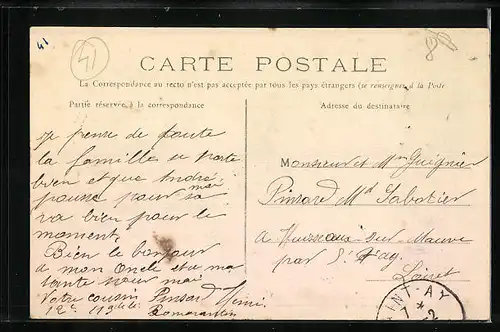 41
41
CARTE POSTALE
La Correspondance au recto n'est pas acceptée par tous les pays étrangers (se renseigner à la Poste
Partie réservée à la correspondance
Adresse du destinataire
Je pense de toute
la famille se porte
bien et que André
pousse pour moi
va bien pour le
moment,
Bien le bonjour
a mon Oncle et a ma
tante pour moi
Votre cousin Pinsard Henri
12e 113e de li
Romorantin
Monsieur et Mme Guignier
Pinsard Md Sabotier
a Huisseau-sur-Mauve
par St Ay
Loiret
SAINT-AY